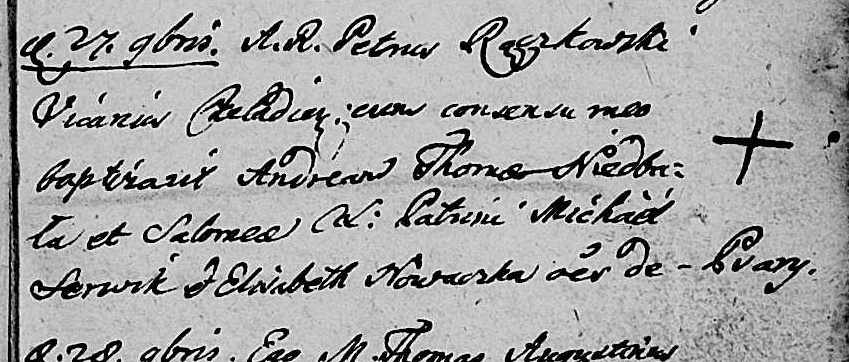 d. 27. 9bris. A. R. Petrus Rączkowski
Vicarius Czeladien: cum consensu meo
baptizavit Andream Thomæ Niedba:
ła et Salomeæ LC: Patrini Michael
Serwik & Elisabeth Nowaczka oēs de - Psary.
d. 28. 9bris. Ego M. Thomas Augustinus